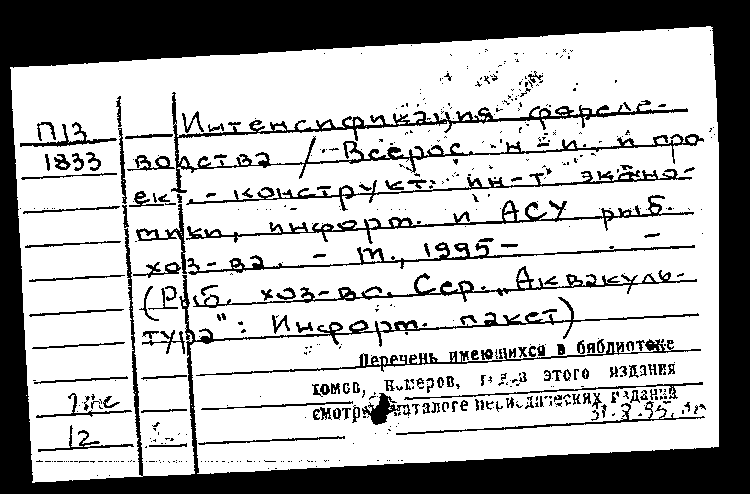 П13
1833
Интенсификация фореле-
водства / Всерос. н.-и. и про
ект.-конструкт. ин-т эконо-
мики, информ. и АСУ рыб.
хоз-ва. - М., 1995 -      . -
(Рыб. хоз-во. Сер. „Аквакуль-
тура": Информ. пакет)
Перечень имеющихся в библиотеке
томов, номеров, годов этого издания
смотри в каталоге периодических изданий
12
31.8.95.